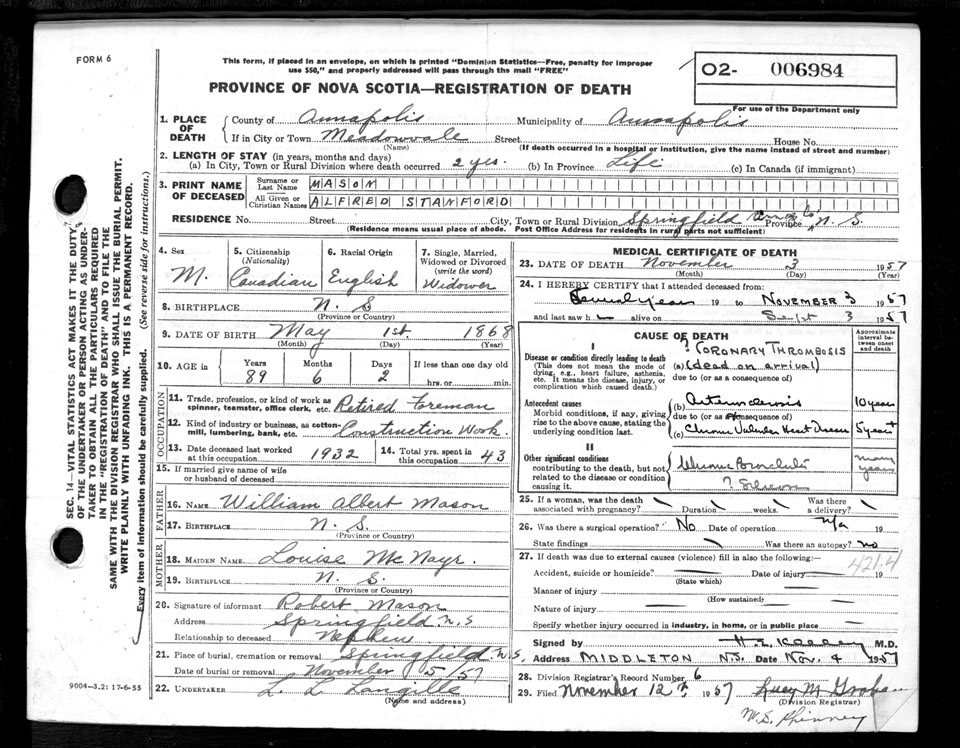 FORM 6
This form, if placed in an envelope, on which is printed "Dominion Statistics—Free, penalty for improper
use $50," and properly addressed will pass through the mail "FREE"
PROVINCE OF NOVA SCOTIA—REGISTRATION OF DEATH
02- 006984
For use of the Department only
1. PLACE OF DEATH
County of Annapolis Municipality of Annapolis
If in City or Town Meadowvale Street House No.
(Name) (If death occurred in a hospital or institution, give the name instead of street and number)
2. LENGTH OF STAY (in years, months and days)
(a) In City, Town or Rural Division where death occurred 2 yrs. (b) In Province Life (c) In Canada (if immigrant)
3. PRINT NAME OF DECEASED
Surname or Last Name MASON
All Given or Christian Names ALFRED STANFORD
RESIDENCE No. Street City, Town or Rural Division Springfield Province N. S.
(Residence means usual place of abode. Post Office Address for residents in rural parts not sufficient)
4. Sex M.
5. Citizenship (Nationality) Canadian
6. Racial Origin English
7. Single, Married, Widowed or Divorced (write the word) Widower
8. BIRTHPLACE N. S
(Province or Country)
9. DATE OF BIRTH May 1st. 1868
(Month) (Day) (Year)
10. AGE in Years 89 Months 6 Days 2 If less than one day old hrs. or min.
OCCUPATION
11. Trade, profession, or kind of work as spinner, teamster, office clerk, etc. Retired Foreman
12. Kind of industry or business, as cotton-mill, lumbering, bank, etc. Construction Work.
13. Date deceased last worked at this occupation 1932
14. Total yrs. spent in this occupation 43
15. If married give name of wife or husband of deceased
FATHER
16. NAME William Albert Mason
17. BIRTHPLACE N. S.
(Province or Country)
MOTHER
18. MAIDEN NAME Louise McNayr.
19. BIRTHPLACE N. S
(Province or Country)
20. Signature of informant Robert Mason
Address Springfield N.S
Relationship to deceased Nephew
21. Place of burial, cremation or removal Springfield N.S.
Date of burial or removal November 5/57
22. UNDERTAKER L. L. Langille
(Name and address)
MEDICAL CERTIFICATE OF DEATH
23. DATE OF DEATH November 3 1957
(Month) (Day) (Year)
24. I HEREBY CERTIFY that I attended deceased from:
Several years 19 to NOVEMBER 3 1957
and last saw h alive on Sept 3 1957
CAUSE OF DEATH
Approximate interval between onset and death
I
Disease or condition directly leading to death
(This does not mean the mode of dying, e.g., heart failure, asthenia, etc. It means the disease, injury, or complication which caused death.)
? CORONARY THROMBOSIS
(a) (dead on arrival)
due to (or as a consequence of)
Antecedent causes
Morbid conditions, if any, giving rise to the above cause, stating the underlying condition last.
(b) Arteriosclerosis 10 years
due to (or as a consequence of)
(c) Chronic Valvular Heart Disease 5 years+
II
Other significant conditions
contributing to the death, but not related to the disease or condition causing it
Chronic Bronchitis many years
25. If a woman, was the death associated with pregnancy? Duration weeks. Was there a delivery?
26. Was there surgical operation? No Date of operation N/a 19
State findings Was there an autopsy? no
27. If death was due to external causes (violence) fill in also the following:—
421.4
Accident, suicide or homicide? Date of injury 19
(State which)
Manner of injury
(How sustained)
Nature of injury
Specify whether injury occurred in industry, in home, or in public place
Signed by M.D.
Address MIDDLETON N.S. Date Nov. 4 1957
28. Division Registrar's Record Number 6
29. Filed November 12th 1957 Lucy M Graham
(Division Registrar)
W. S. Phinney
SEC. 14—VITAL STATISTICS ACT MAKES IT THE DUTY
OF THE UNDERTAKER OR PERSON ACTING AS UNDER-
TAKER TO OBTAIN ALL THE PARTICULARS REQUIRED
IN THE "REGISTRATION OF DEATH" AND TO FILE THE
SAME WITH THE DIVISION REGISTRAR WHO SHALL ISSUE THE BURIAL PERMIT.
WRITE PLAINLY WITH UNFADING INK. THIS IS A PERMANENT RECORD.
Every item of information should be carefully supplied. (See reverse side for instructions.)
9004-3.2: 17-6-55